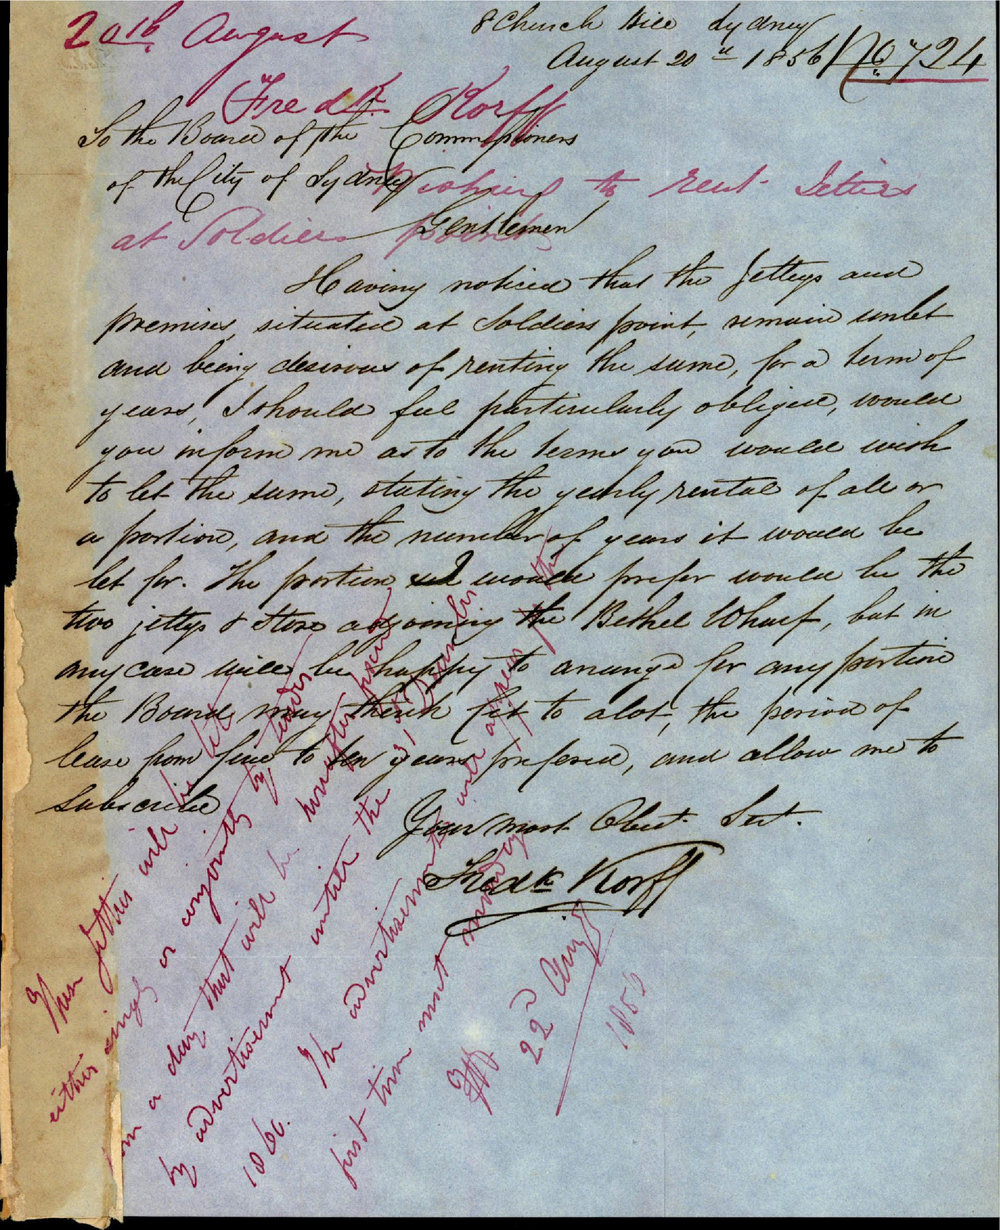 20th August
8 Church Hill Sydney
August 20th 1856
No 724
Fredk Korff
To the Board of the Commissioners
of the City of Sydney
Wishing to rent Jetties
at Soldiers point
Gentlemen
Having noticed that the Jettys and
premises, situated at Soldiers point, remain unlet
and being desirous of renting the same, for a term of
years, I should feel particularly obliged, would
you inform me as to the terms you would wish
to let the same, stating the yearly rental of all or
a portion, and the number of years it would be
let for. The portion I would prefer would be the
two jettys & Store adjoining the Bethel Wharf, but in
any case will be happy to arrange for any portion
the Board may think fit to alot, the period of
lease from five to ten years prefered, and allow me to
subscribe
Your most Obent Sert.
Fredk Korff
These Jetties will be let
either singly or conjointly by tender
from a day that will be hereafter fixed
by advertisement until the 31st December
1860. The advertisement will appear for the
first time next monday
22nd Aug
1856